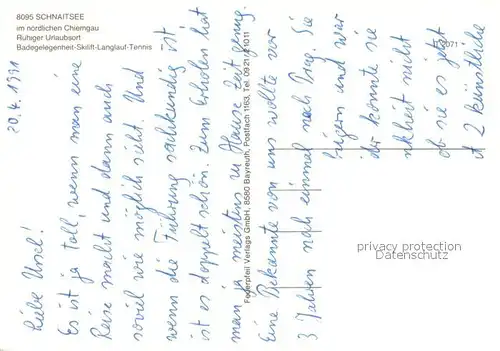 8095 SCHNAITSEE
im nördlichen Chiemgau
Ruhiger Urlaubsort
Badegelegenheit-Skilift-Langlauf-Tennis
29.4.1991
Liebe Ursel!
Es ist ja toll, wenn man eine
Reise macht und dann auch
soviel wie möglich sieht. Und
wenn die Führung sachkundig ist,
ist es doppelt schön. Zum Erholen hat
man ja meistens zu Hause Zeit genug.
Eine Bekannte von uns wollte vor
3 Jahren noch einmal nach Prag. Sie
und war
konnte sie
nicht
ob sie es jetzt
2 künstliche
Federpfeil Verlags GmbH, 8580 Bayreuth, Postfach 1163, Tel. 0921/21011
privacy protection
DATENSCHUTZ